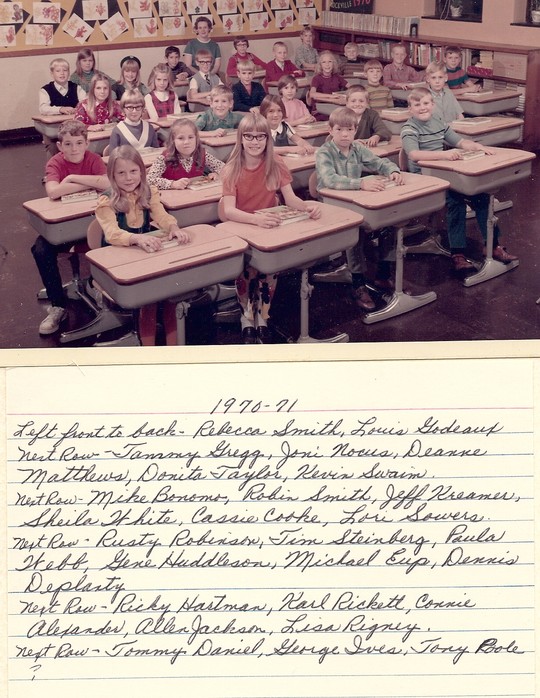 OCKVILLE 1970
1970-71
Left front to back - Rebecca Smith, Louis Godeaux
Next Row - Tammy Gregg, Joni Nocus, Deanne
Matthews, Donita Taylor, Kevin Swaim.
Next Row - Mike Bonomo, Robin Smith, Jeff Kreamer,
Sheila White, Cassie Cooke, Lori Sowers.
Next Row - Rusty Robinson, Tim Steinberg, Paula
Webb, Gene Huddleson, Michael Eup, Dennis
Deplanty
Next Row - Ricky Hartman, Karl Rickett, Connie
Alexander, Allen Jackson, Lisa Rigney.
Next Row - Tommy Daniel, George Ives, Tony Bole
?